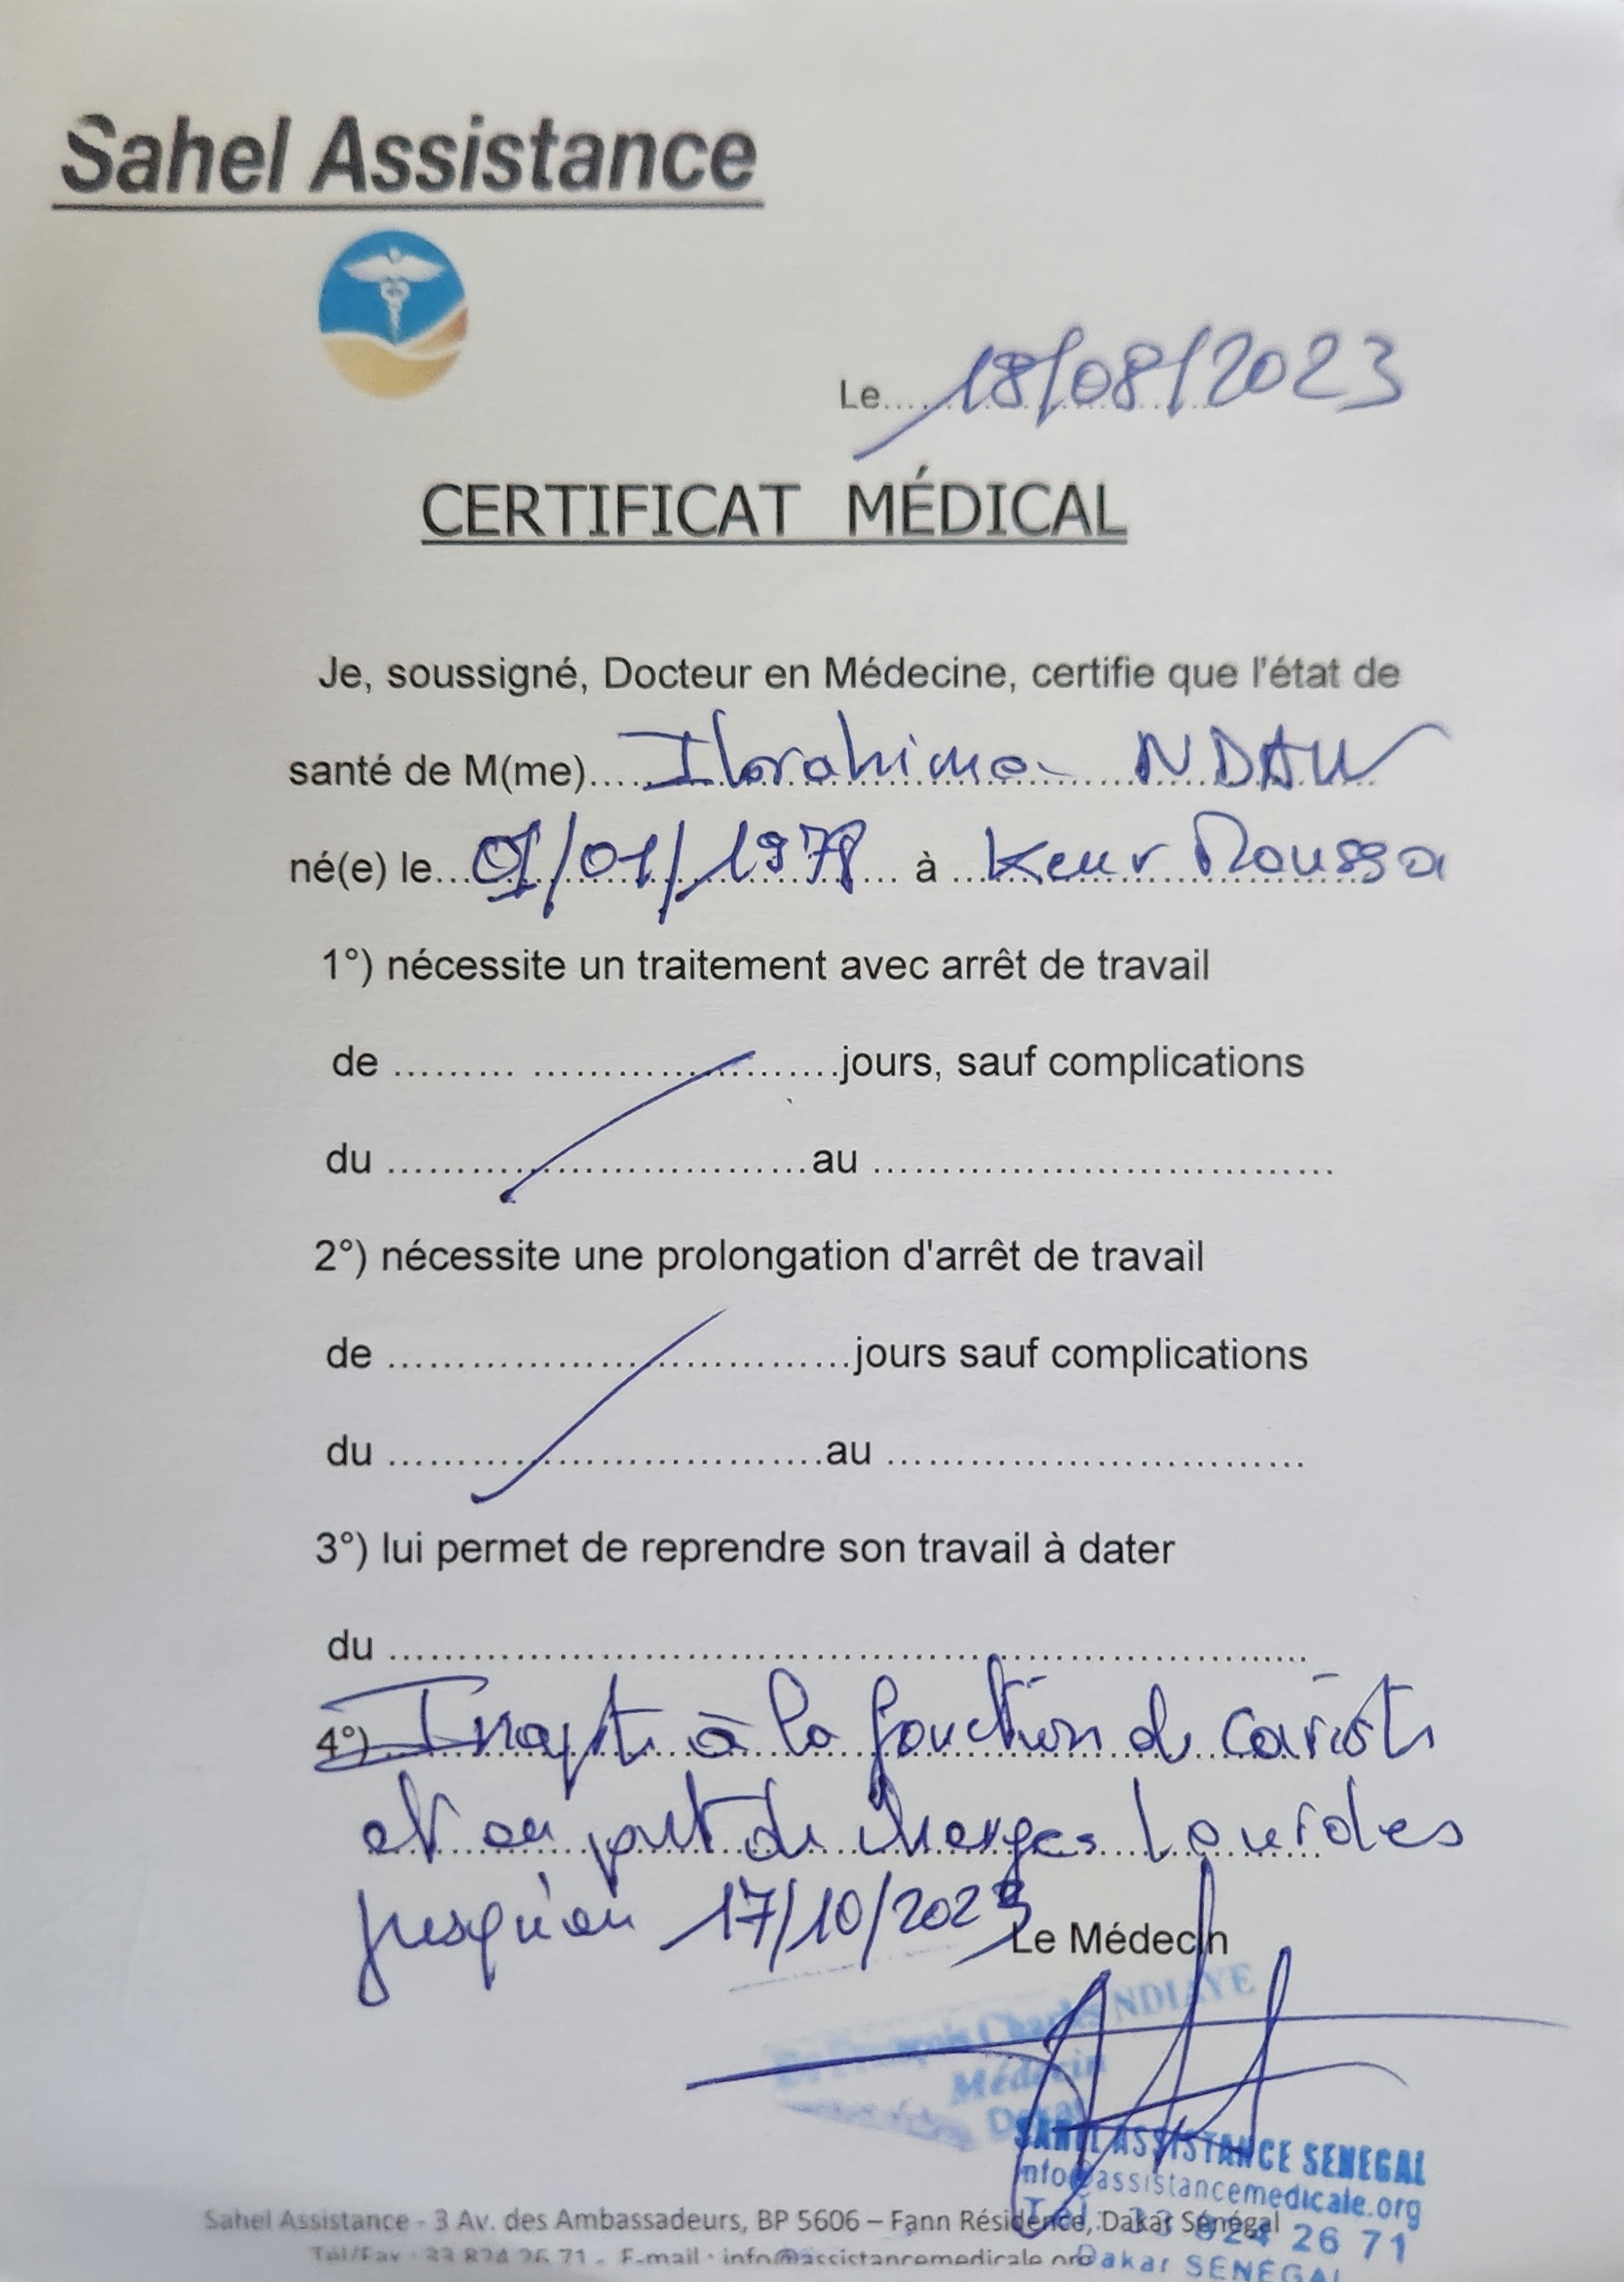 Sahel Assistance
Le....18/08/2023
CERTIFICAT MÉDICAL
Je, soussigné, Docteur en Médecine, certifie que l'état de
santé de M(me)....Ibrahima NDAW
né(e) le...01/01/1978... à ...Keur Moussa
1°) nécessite un traitement avec arrêt de travail
de ......... ......................jours, sauf complications
du ..............................au .................................
2°) nécessite une prolongation d'arrêt de travail
de .................................jours sauf complications
du ...............................au ..............................
3°) lui permet de reprendre son travail à dater
du ..................................................................
4°) Inapte à la fonction de cariste
et au port de charges lourdes
jusqu'au 17/10/2023
Le Médecin
Dr François Charles NDIAYE
Médecin
Dakar
SAHEL ASSISTANCE SENEGAL
info@assistancemedicale.org
Tel : 33 824 26 71
Dakar SENEGAL
Sahel Assistance - 3 Av. des Ambassadeurs, BP 5606 – Fann Résidence, Dakar Sénégal
Tél/Fax : 33 824 26 71 - E-mail : info@assistancemedicale.org